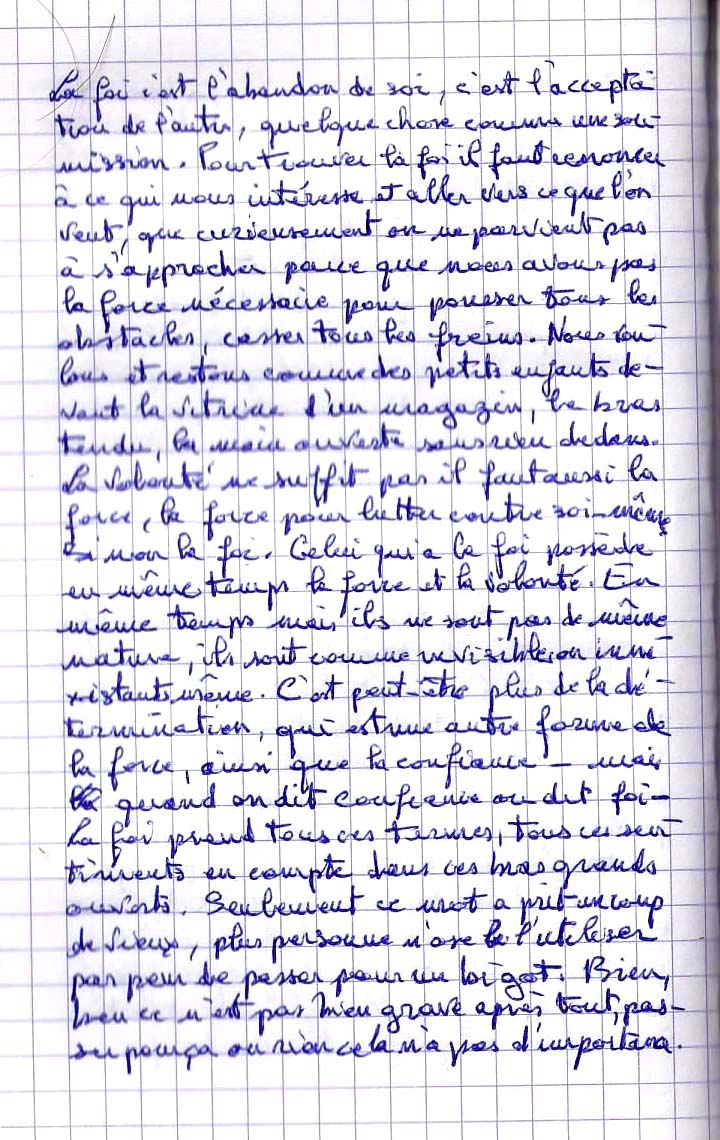 La foi c'est l'abandon de soi, c'est l'accepta-
tion de l'autre, quelque chose comme une sou-
mission. Pour trouver la foi il faut renoncer
à ce qui nous intéresse et aller vers ce que l'on
veut, que curieusement on ne parvient pas
à s'approcher parce que nous avons pas
la force nécessaire pour pousser tous les
obstacles, casser tous les freins. Nous vou-
lons et restons comme des petits enfants de-
vant la vitrine d'un magazin, le bras
tendu, la main ouverte sans rien dedans.
La volonté ne suffit pas il faut aussi la
force, la force pour lutter contre soi-même
sinon la foi. Celui qui a la foi possède
en même temps la force et la volonté. En
même temps mais ils ne sont pas de même
nature, ils sont comme invisible ou inne-
xistants même. C'est peut-être plus de la dé-
termination, qui est une autre forme de
la force, ainsi que la confiance - mais
quand on dit confiance on dit foi -
La foi prend tous ces termes, tous ces sen-
timents en compte dans ces bras grands
ouverts. Seulement ce mot a prit un coup
de vieux, plus personne n'ose l'utiliser
par peur de passer pour un bigot. Bien,
bien ce n'est pas bien grave après tout, pas-
ser pour ça ou non cela n'a pas d'importance.